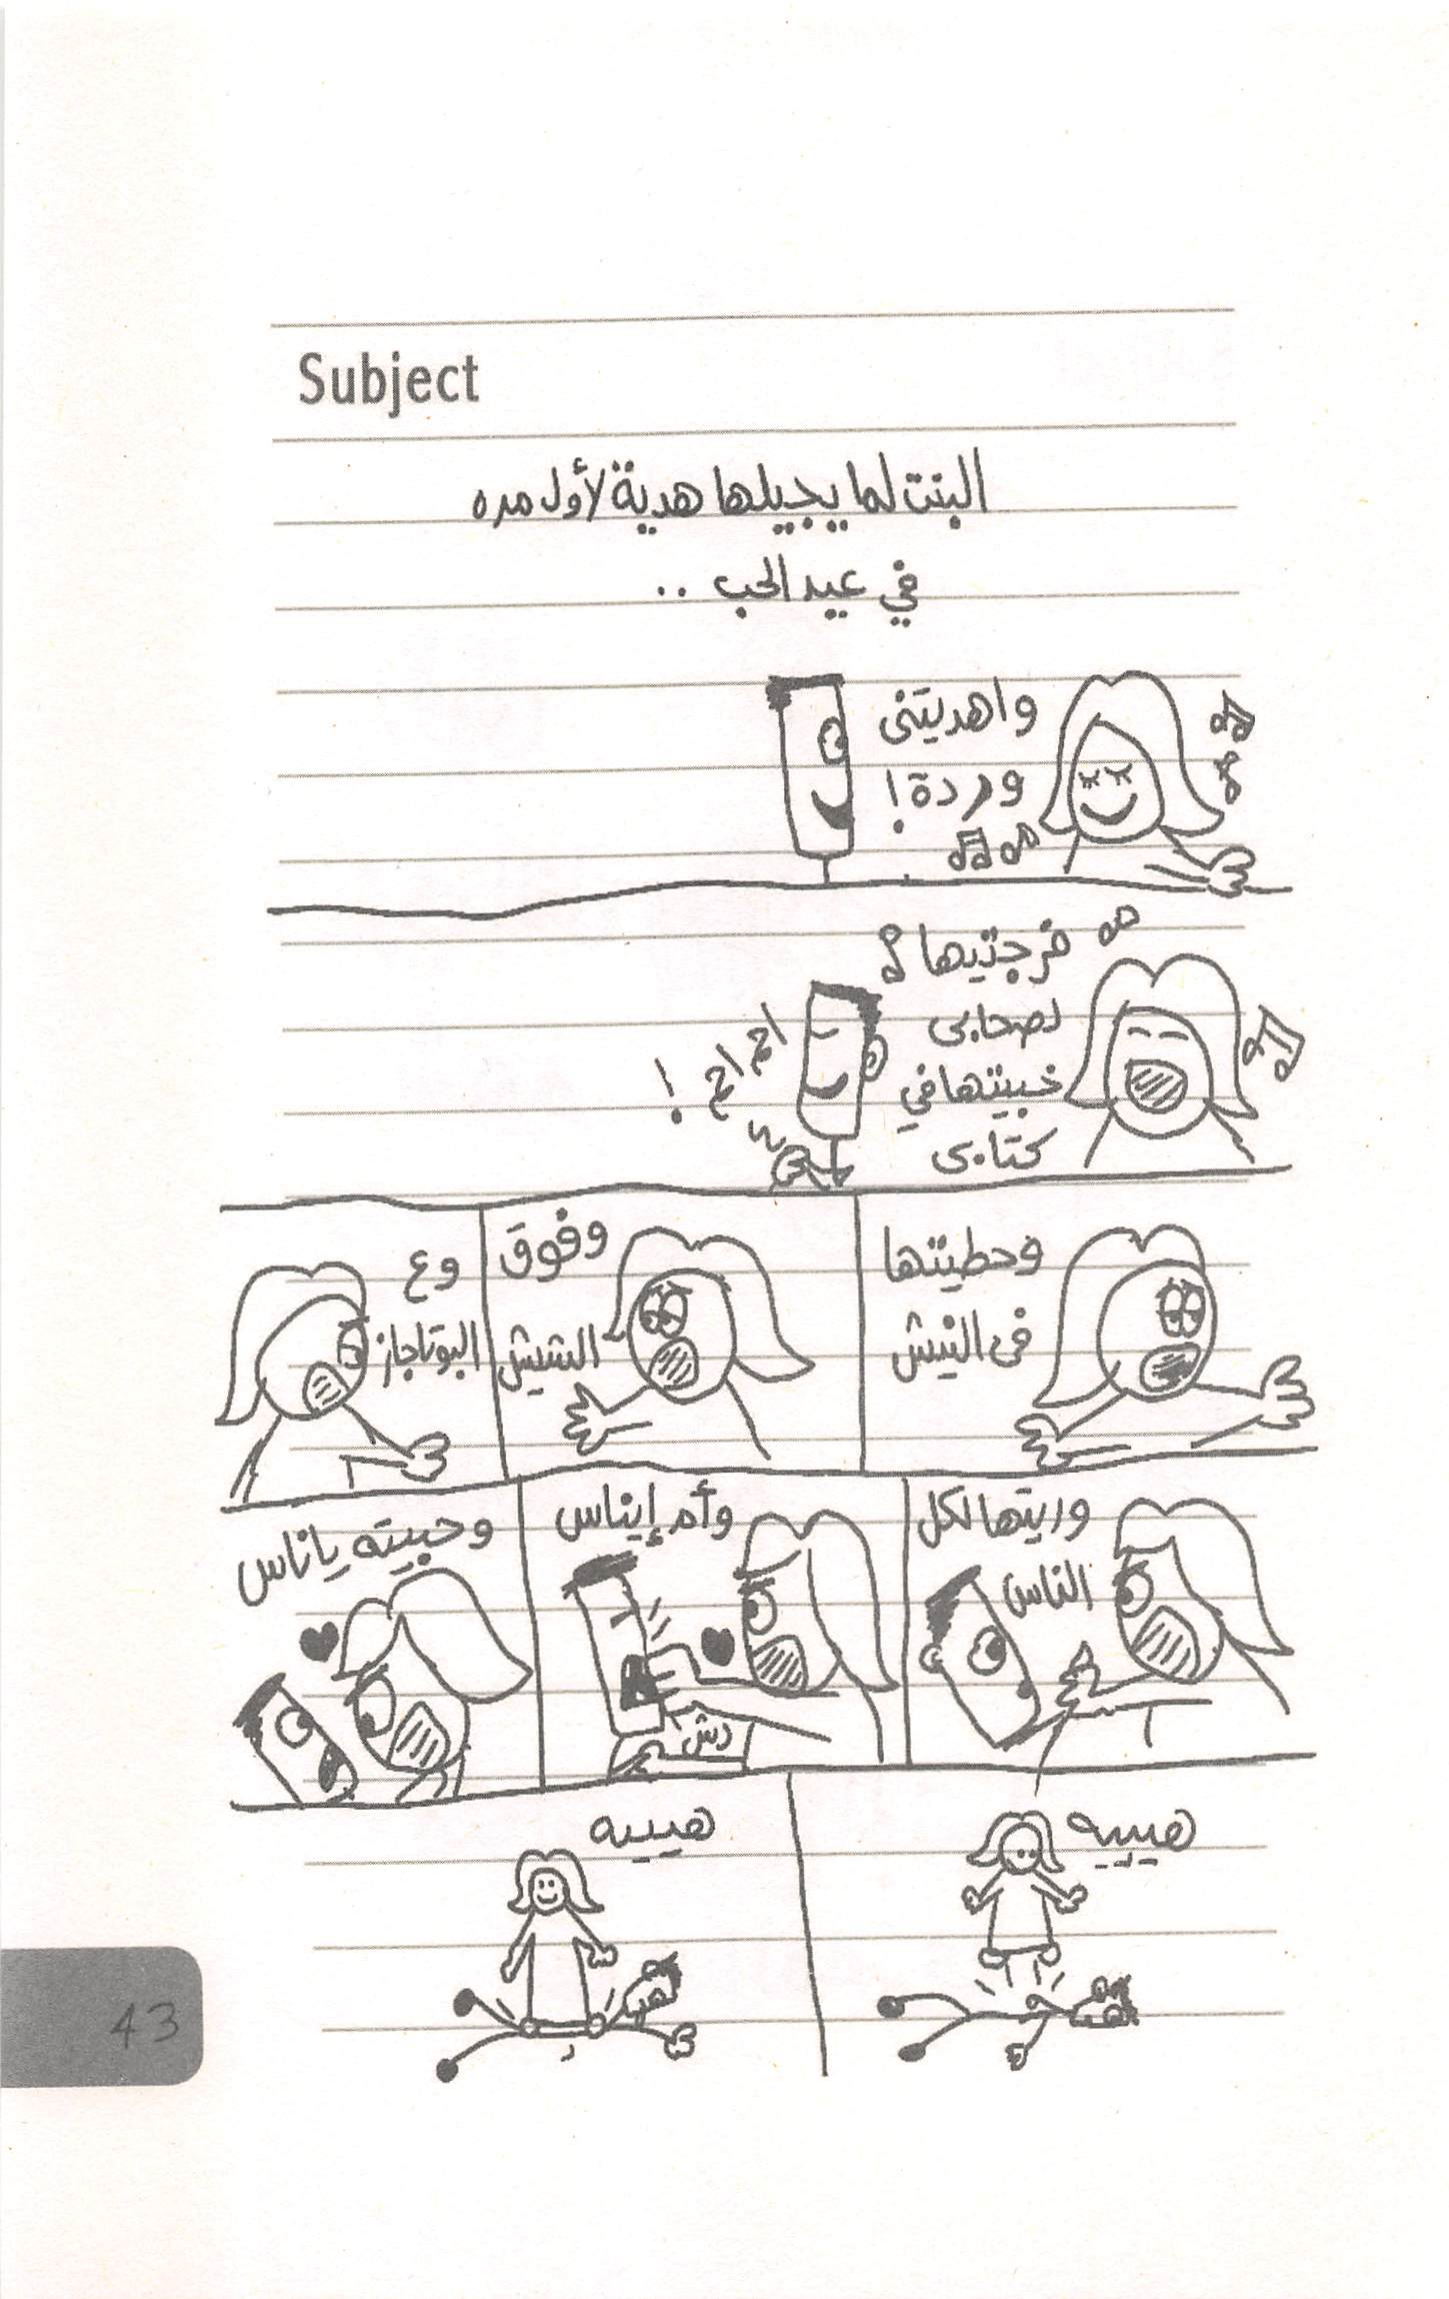 Subject
البنت لما يجيلها هدية لأول مره
في عيد الحب ..
واهديتنى
وردة !
فرجتيها
لصحابى
خبيتها في
كتابى
احم احم !
وحطيتها
فى النيش
وفوق
الشيش
وع
البوتاجاز
وريتها لكل
الناس
وأم إيناس
دش
وحبيته ياناس
هيييه
هيييه
43